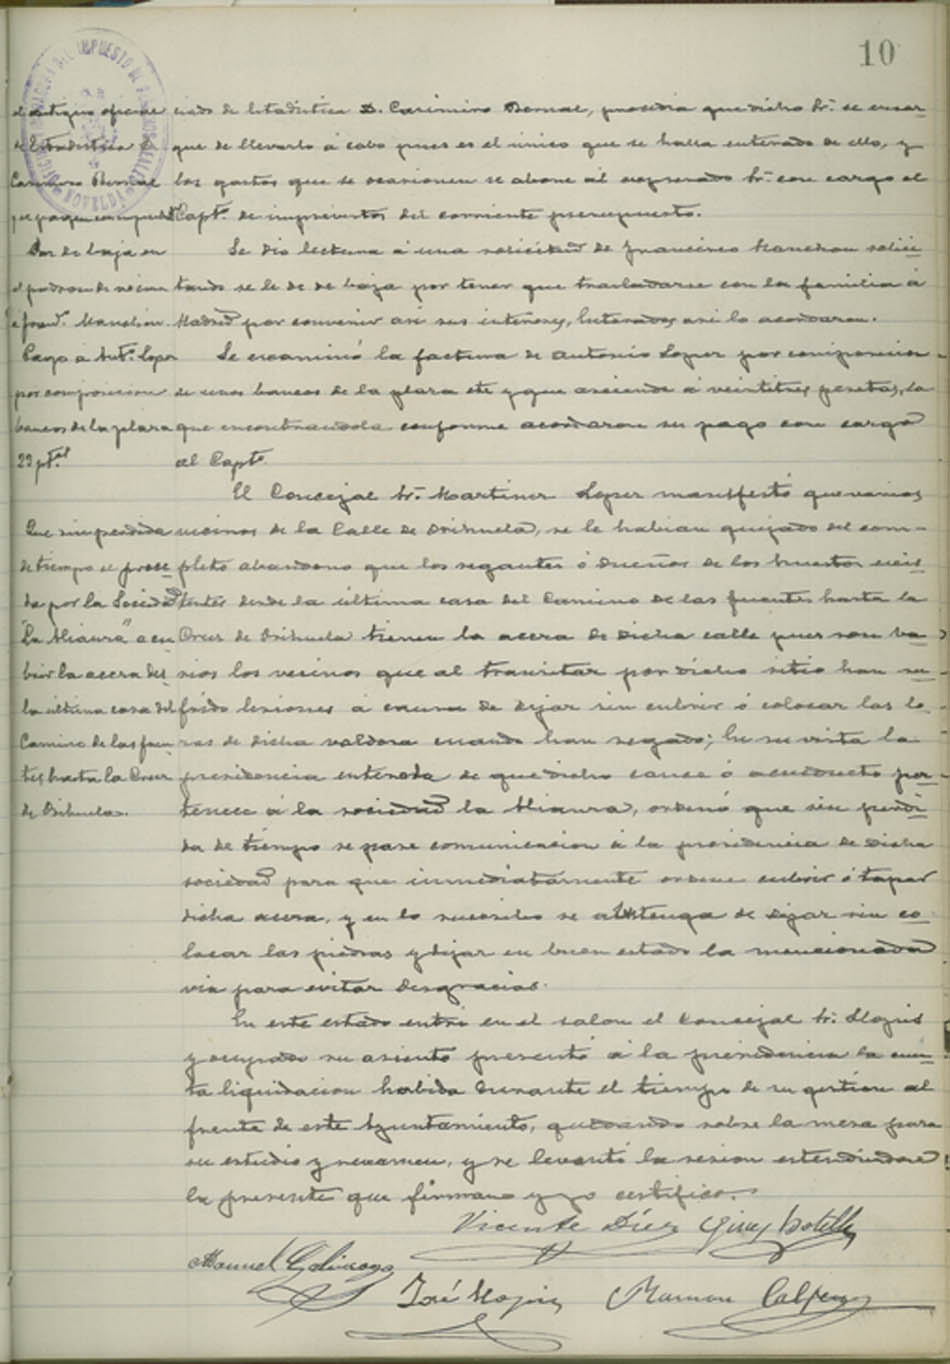 10
el antiguo oficial
de Estadística D.
Casimiro Bernal
se pague
Dar de baja en
el padron de vecinos
a Franco. Manchon
Pago a Anto. Lopez
por composicion
bancos de la plaza
23 ptas
Que sin perdida
de tiempo se proce
da por la Sociedad
"La Miaura" a cu
brir la acera des
la ultima casa del
Camino de las fuen
tes hasta la Cruz
de Orihuela.
ciado de Estadística D. Casimiro Bernal, procedia que dicho Sr. se encar
gue de llevarlo á cabo pues es el único que se halla enterado de ello, y
los gastos que se ocasionen se abone al expresado Sr. con cargo al
Capto. de imprevistos del corriente presupuesto.
Se dió lectura á una solicitud de Francisco Manchon solici
tando se le dé de baja por tener que trasladarse con la familia á
Madrid por convenir asi sus intereses, Enterados asi lo acordaron.
Se examinó la factura de Antonio Lopez por composicion
de unos bancos de la plaza etc y que asciende á veintitres pesetas, la
que encontrandola conforme acordaron su pago con cargo
al Capto
El Concejal Sr. Martinez Lopez manifestó que varios
vecinos de la Calle de Orihuela, se le habian quejado del com-
pleto abandono que los regantes ó dueños de los huertos exis
tentes desde la última casa del Camino de las fuentes hasta la
Cruz de Orihuela tienen la acera de dicha calle pues son va
rios los vecinos que al transitar por dicho sitio han su
frido lesiones á causa de dejar sin cubrir ó colocar las lo
zas de dicha valdosa cuando han regado; En su vista la
presidencia enterada de que dicho cauce ó acueducto per
tenece á la sociedad la Miaura, ordenó que sin perdi
da de tiempo se pase comunicacion á la presidencia de dicha
sociedad para que inmediatamente ordene cubrir ó tapar
dicha acera, y en lo sucesibo se abstenga de dejar sin co
locar las piedras y dejar en buen estado la mencionada
via para evitar desgracias.
En este estado entró en el salon el Concejal Sr. Llopis
y ocupado su asiento presentó á la presidencia la cuen
ta liquidacion habida durante el tiempo de su gestion al
frente de este Ayuntamiento, quedando sobre la mesa para
su estudio y examen, y se levantó la sesion estendiendose
la presente que firman y yo certifico.
Vicente Díez Gines Botella
Manuel Galinsoga
José Llopis Ramon Calpena